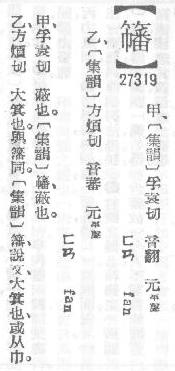 【䉒】
27319
甲、〔集韻〕孚袁切 音翻 元平聲
ㄈㄢ fan
乙、〔集韻〕方煩切 音蕃 元平聲
ㄈㄢ fan
甲、孚袁切 蔽也。〔集韻〕䉒、蔽也。
乙、方煩切 大箕也。與籓同。〔集韻〕籓、說文、大箕也、或从巾。